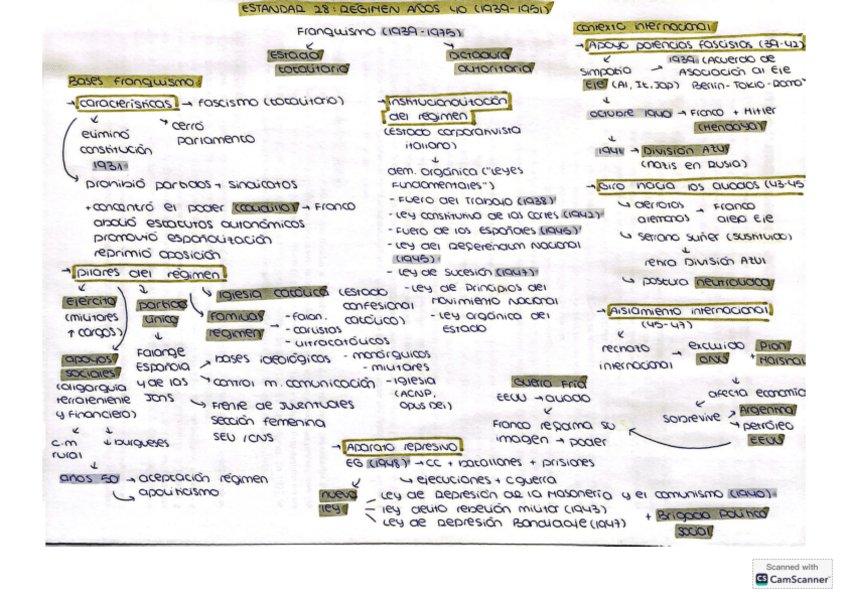 ESTANDAR 28: RÉGIMEN AÑOS 40 (1939-1951)
Franquismo (1939-1975)
Estado totalitario
Dictadura autoritaria
Bases franquismo
→ características → fascismo (totalitario)
eliminó constitución 1931
cerró parlamento
prohibió partidos + sindicatos
+ concentró el poder (caudillo) → Franco
abolió estatutos autonómicos
promovió españolización
reprimió oposición
→ pilares del régimen
Ejército (militares ↑ cargos)
partido único
Falange Española y de las JONS
Iglesia católica (Estado confesional católico)
familias régimen
- falan.
- carlistas
- ultracatólicos
- monárquicos
- militares
- Iglesia (ACNP, Opus Dei)
bases ideológicos
control m. comunicación
Frente de Juventudes
sección femenina
SEU / CNS
apoyos sociales (oligarquía terrateniente y financiero)
c.m rural
burgueses
años 50 → aceptación régimen
apoliticismo
→ Institucionalización del régimen
(Estado corporativista italiano)
dem. orgánica ("Leyes Fundamentales")
- Fuero del Trabajo (1938)
- Ley constitutiva de las Cortes (1942)
- Fuero de los Españoles (1945)
- Ley del Referendum Nacional (1945)
- Ley de Sucesión (1947)
- Ley de Principios del Movimiento Nacional
- Ley orgánica del Estado
→ Aparato represivo
(1948) → CC + batallones + prisiones
ejecuciones + cguerra
nueva ley
Ley de Represión de la Masonería y el comunismo (1940)
ley delito rebelión militar (1943)
Ley de Represión Bandidaje (1947)
+ Brigada Político Social
contexto internacional
→ Apoyo potencias fascistas (39-42)
Simpatía Eje (Al, It, Jap)
→ 1939 (Acuerdo de Asociación al Eje Berlin-Tokio-Roma
octubre 1940 → Franco + Hitler (Hendaya)
1941 → División Azul (nazis en Rusia)
→ Giro hacia los aliados (43-45
derrotas alemanas → Franco deja Eje
Serrano Suñer (sustituido)
retira División Azul
postura neutralidad
→ Aislamiento internacional (45-47)
rechazo internacional → excluido ONU + Plan Marshal
afecta economía
sobrevive
Argentina
petróleo EEUU
Guerra Fría
EEUU → aliado
Franco reforma su imagen → poder
Scanned with
CS CamScanner